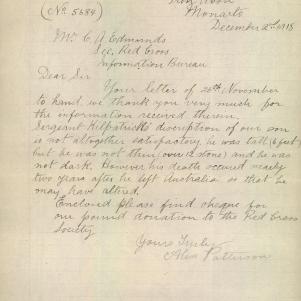 (No. 5684)
Monarto
December 2nd 1918
Mr. C. A. Edmunds
Sec, Red Cross
Information Bureau
Dear Sir
Your letter of 26th, November
to hand we thank you very much for
the information received therein,
Sergeant Kilpatrick's discription of our son
is not altogether satisfactory, he was tall (6 feet)
but he was not thin (over 12 stone) and he was
not dark. However his death occured nearly
two years after he left Australia so that he
may have altred.
Enclosed please find cheque for
one pound donation to the Red Cross
Society
Yours Truly
Alex Patterson